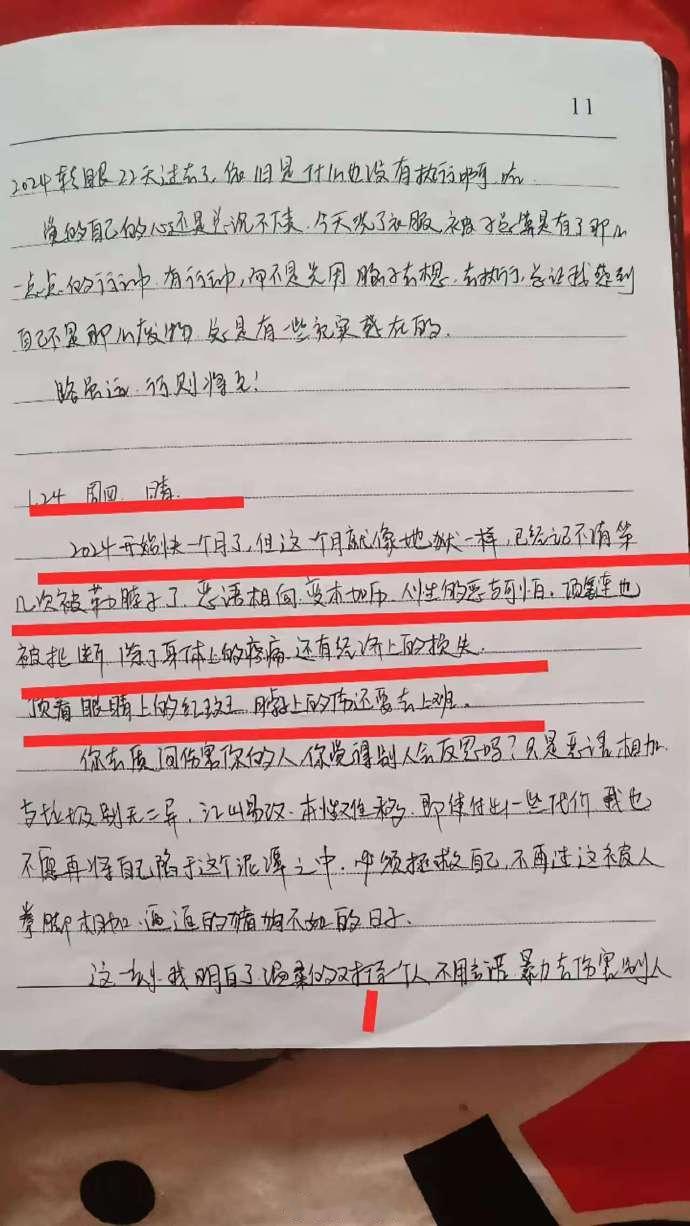 11
2024转眼22天过去了,依旧是什么也没有执行啊哈
觉的自己的心还是总沉不下来.今天洗了衣服,被子总算是有了那么
一点点的行动.有行动,而不是先用脑子去想.去执行,总让我感到
自己不是那么废物 总是有一些充实感在的.
路虽远.行则将至!
1.24 周四. 晴.
2024开始快一个月了,但这个月就像地狱一样,已经记不清第
几次被勒脖子了.恶语相向.变本加厉.人性的恶与可怕.项链也
被扯断.除了身体上的疼痛.还有经济上的损失.
顶着眼睛上的红斑.脖子上的伤还要去上班.
你去质问伤害你的人,你觉得别人会反思吗?只是恶语相加
与垃圾别无二异,江山易改.本性难移.即使付出一些代价 我也
不愿再将自己陷于这个泥潭之中.必须拯救自己,不再过这被人
拳脚相加.逼迫的猪狗不如的日子.
这一刻.我明白了.温柔的对待一个人 不用言语.暴力去伤害别人